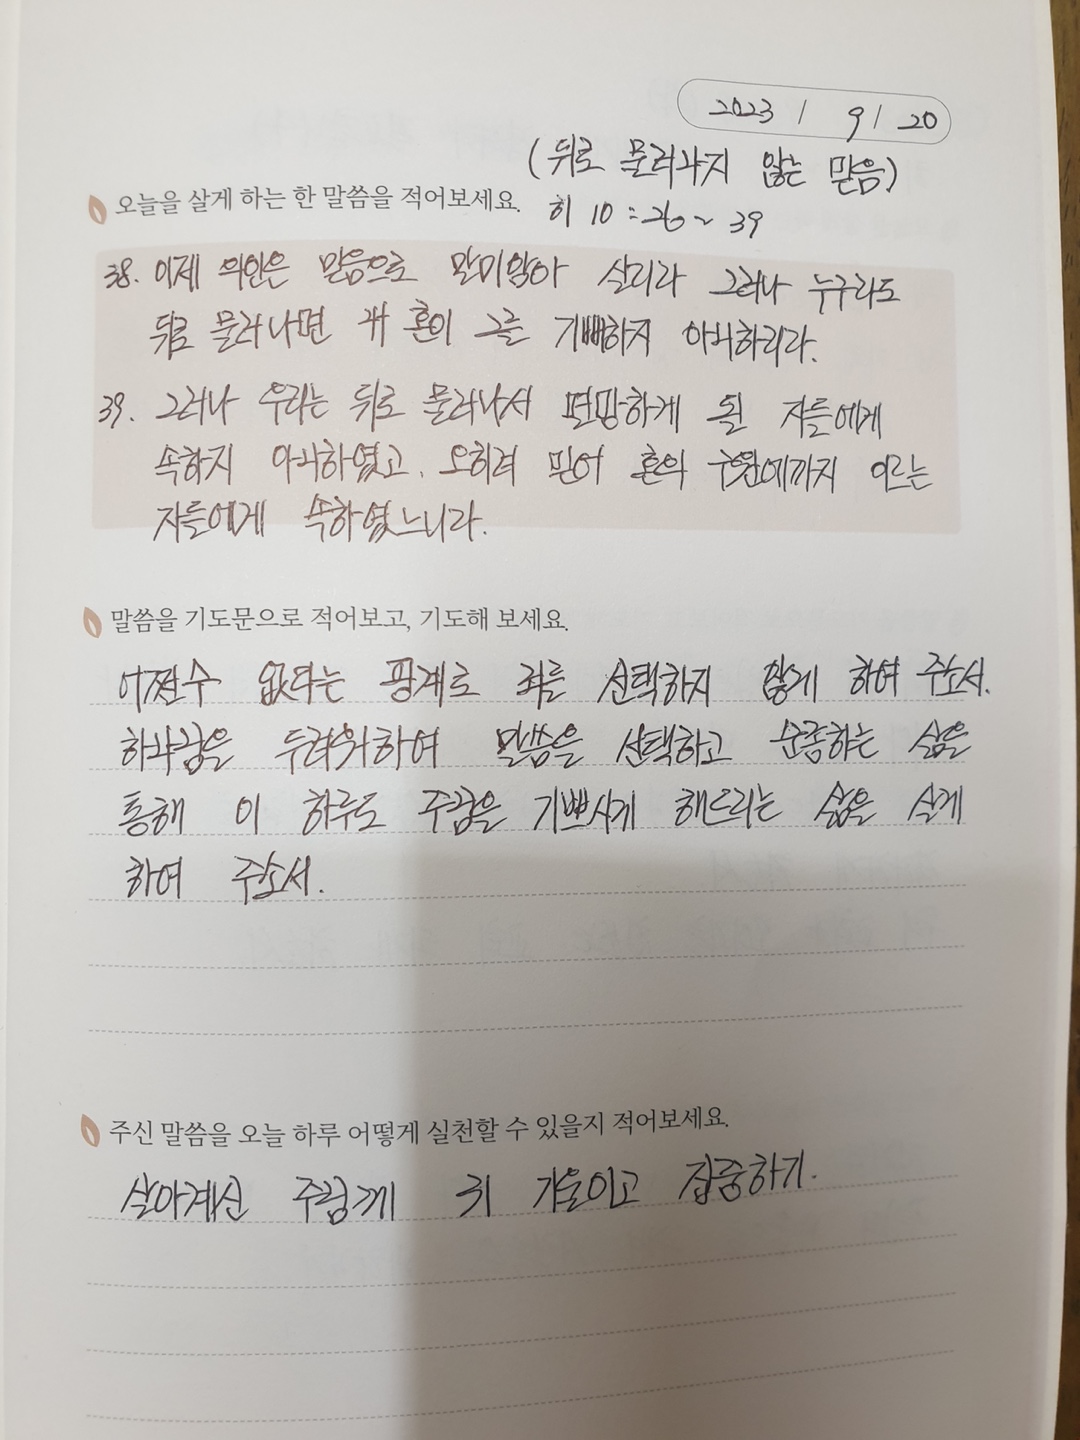 2023 / 9 / 20
(뒤로 물러나지 않는 믿음)
오늘을 살게 하는 한 말씀을 적어보세요. 히 10:26~39
38. 이제 의인은 믿음으로 말미암아 살리라 그러나 누구라도
뒤로 물러나면 내 혼이 그를 기뻐하지 아니하리라.
39. 그러나 우리는 뒤로 물러나서 멸망하게 될 자들에게
속하지 아니하였고, 오히려 믿어 혼의 구원에까지 이르는
자들에게 속하였느니라.
말씀을 기도문으로 적어보고, 기도해 보세요.
어쩔수 없다는 핑계로 죄를 선택하지 않게 하여 주소서.
하나님을 두려워하여 말씀을 선택하고 순종하는 삶을
통해 이 하루도 주님을 기쁘시게 해드리는 삶을 살게
하여 주소서.
주신 말씀을 오늘 하루 어떻게 실천할 수 있을지 적어보세요.
살아계신 주님께 귀 기울이고 집중하기.